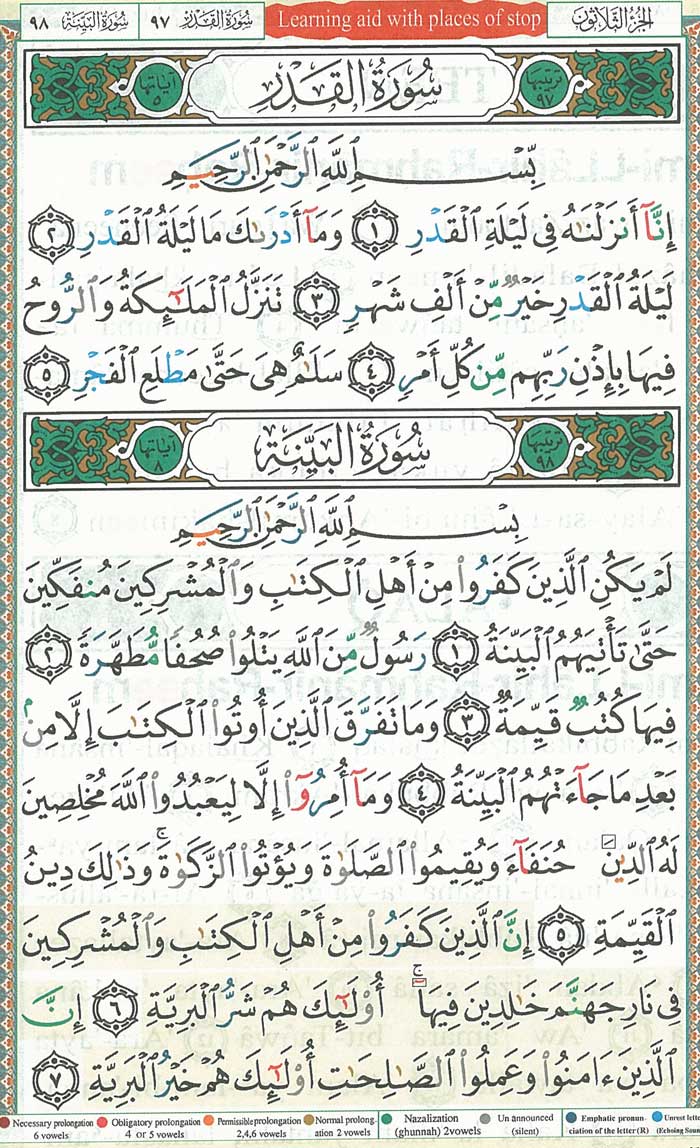 الجزء الثلاثون
Learning aid with places of stop
سورة القدر ٩٧
سورة البينة ٩٨
ترتيبها ٩٧
سُورَةُ القَدْرِ
آياتها ٥
بِّسْمِ ٱللَّهِ ٱلرَّحْمَٰنِ ٱلرَّحِيمِ
إِنَّآ أَنزَلْنَٰهُ فِى لَيْلَةِ ٱلْقَدْرِ ١ وَمَآ أَدْرَىٰكَ مَا لَيْلَةُ ٱلْقَدْرِ ٢
لَيْلَةُ ٱلْقَدْرِ خَيْرٌ مِّنْ أَلْفِ شَهْرٍ ٣ تَنَزَّلُ ٱلْمَلَٰٓئِكَةُ وَٱلرُّوحُ
فِيهَا بِإِذْنِ رَبِّهِم مِّن كُلِّ أَمْرٍ ٤ سَلَٰمٌ هِىَ حَتَّىٰ مَطْلَعِ ٱلْفَجْرِ ٥
ترتيبها ٩٨
سُورَةُ البَيِّنَةِ
آياتها ٨
بِسْمِ ٱللَّهِ ٱلرَّحْمَٰنِ ٱلرَّحِيمِ
لَمْ يَكُنِ ٱلَّذِينَ كَفَرُوا۟ مِنْ أَهْلِ ٱلْكِتَٰبِ وَٱلْمُشْرِكِينَ مُنفَكِّينَ
حَتَّىٰ تَأْتِيَهُمُ ٱلْبَيِّنَةُ ١ رَسُولٌ مِّنَ ٱللَّهِ يَتْلُوا۟ صُحُفًا مُّطَهَّرَةً ٢
فِيهَا كُتُبٌ قَيِّمَةٌ ٣ وَمَا تَفَرَّقَ ٱلَّذِينَ أُوتُوا۟ ٱلْكِتَٰبَ إِلَّا مِنۢ
بَعْدِ مَا جَآءَتْهُمُ ٱلْبَيِّنَةُ ٤ وَمَآ أُمِرُوٓا۟ إِلَّا لِيَعْبُدُوا۟ ٱللَّهَ مُخْلِصِينَ
لَهُ ٱلدِّينَ حُنَفَآءَ وَيُقِيمُوا۟ ٱلصَّلَوٰةَ وَيُؤْتُوا۟ ٱلزَّكَوٰةَ ۚ وَذَٰلِكَ دِينُ
ٱلْقَيِّمَةِ ٥ إِنَّ ٱلَّذِينَ كَفَرُوا۟ مِنْ أَهْلِ ٱلْكِتَٰبِ وَٱلْمُشْرِكِينَ
فِى نَارِ جَهَنَّمَ خَٰلِدِينَ فِيهَآ ۚ أُو۟لَٰٓئِكَ هُمْ شَرُّ ٱلْبَرِيَّةِ ٦ إِنَّ
ٱلَّذِينَ ءَامَنُوا۟ وَعَمِلُوا۟ ٱلصَّٰلِحَٰتِ أُو۟لَٰٓئِكَ هُمْ خَيْرُ ٱلْبَرِيَّةِ ٧
Necessary prolongation 6 vowels
Obligatory prolongation 4 or 5 vowels
Permissible prolongation 2,4,6 vowels
Normal prolongation 2 vowels
Nazalization (ghunnah) 2vowels
Un announced (silent)
Emphatic pronunciation of the letter (R)
Unrest lette (Echoing Soun